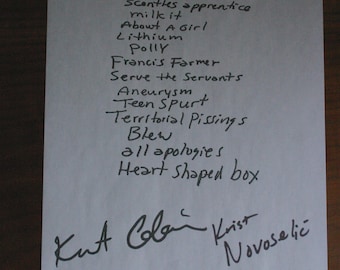 Scentles apprentice
milk it
About A Girl
Lithium
Polly
Francis Farmer
Serve the Servants
Aneurysm
Teen Spurt
Territorial Pissings
Blew
all apologies
Heart shaped box
Kurt Cobain
Krist
Novoselić